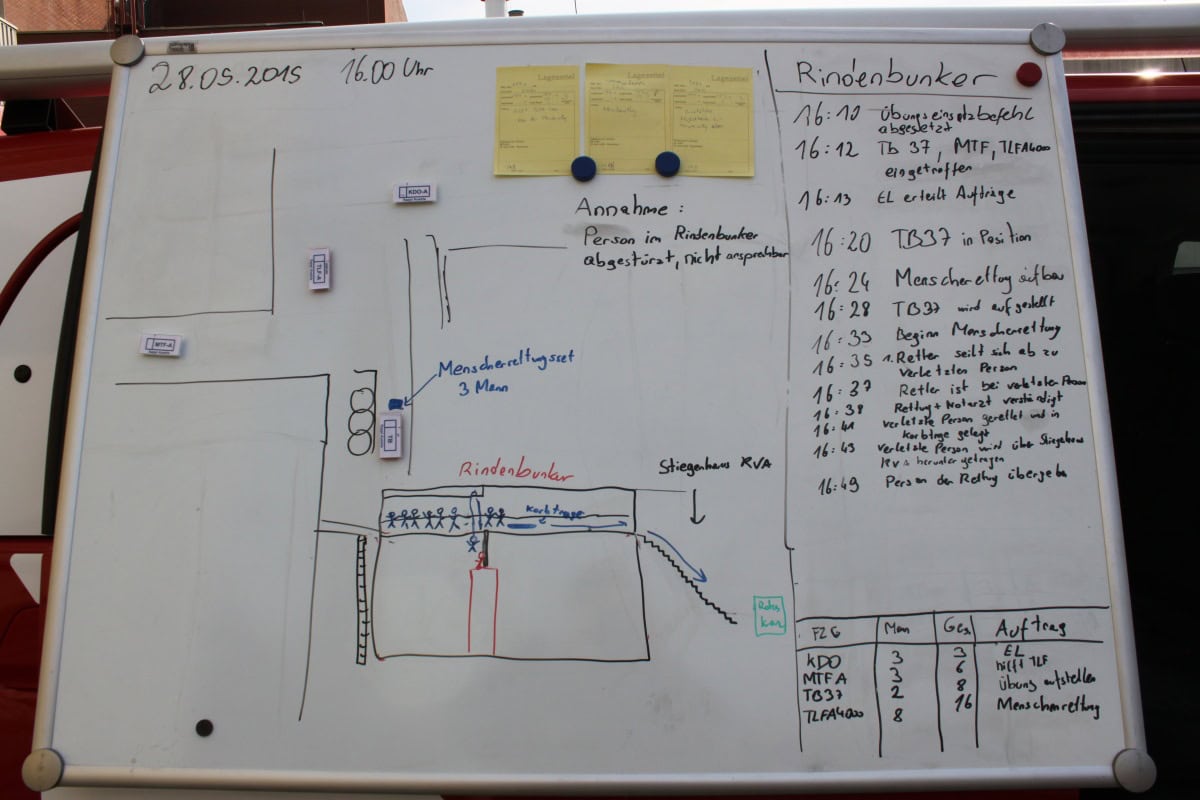 28.05.2015 16.00 Uhr
Lagezettel
Lagezettel
Lagezettel
KDO-A
TLF-A
MTF-A
TB
Annahme:
Person im Rindenbunker
abgestürzt, nicht ansprechbar
Menscherettungsset
3 Mann
Rindenbunker
Stiegenhaus RVA
Korbtrage
Rindenbunker
16:10 Übungseinsatzbefehl
abgesetzt
16:12 Tb 37, MTF, TLFA4000
eingetroffen
16:13 EL erteilt Aufträge
16:20 TB37 in Position
16:24 Menscherettung
16:28 TB37 wird aufgestellt
16:33 Beginn Menscherettung
16:35 1. Retter seilt sich ab zu
verletzten Person
16:37 Retter ist bei verletzten Person
16:38 Rettung + Notarzt verständigt
16:41 verletzte Person gerettet und in
Korbtrage gelegt
16:43 verletzte Person wird über Stiegenhaus
RVA herunter getragen
16:49 Person der Rettung übergeben
FZG Man Ges Auftrag
KDO 3 3 EL
MTFA 3 6 hilft TLF
TB37 2 8 Übung aufstellen
TLFA4000 8 16 Menschenrettung